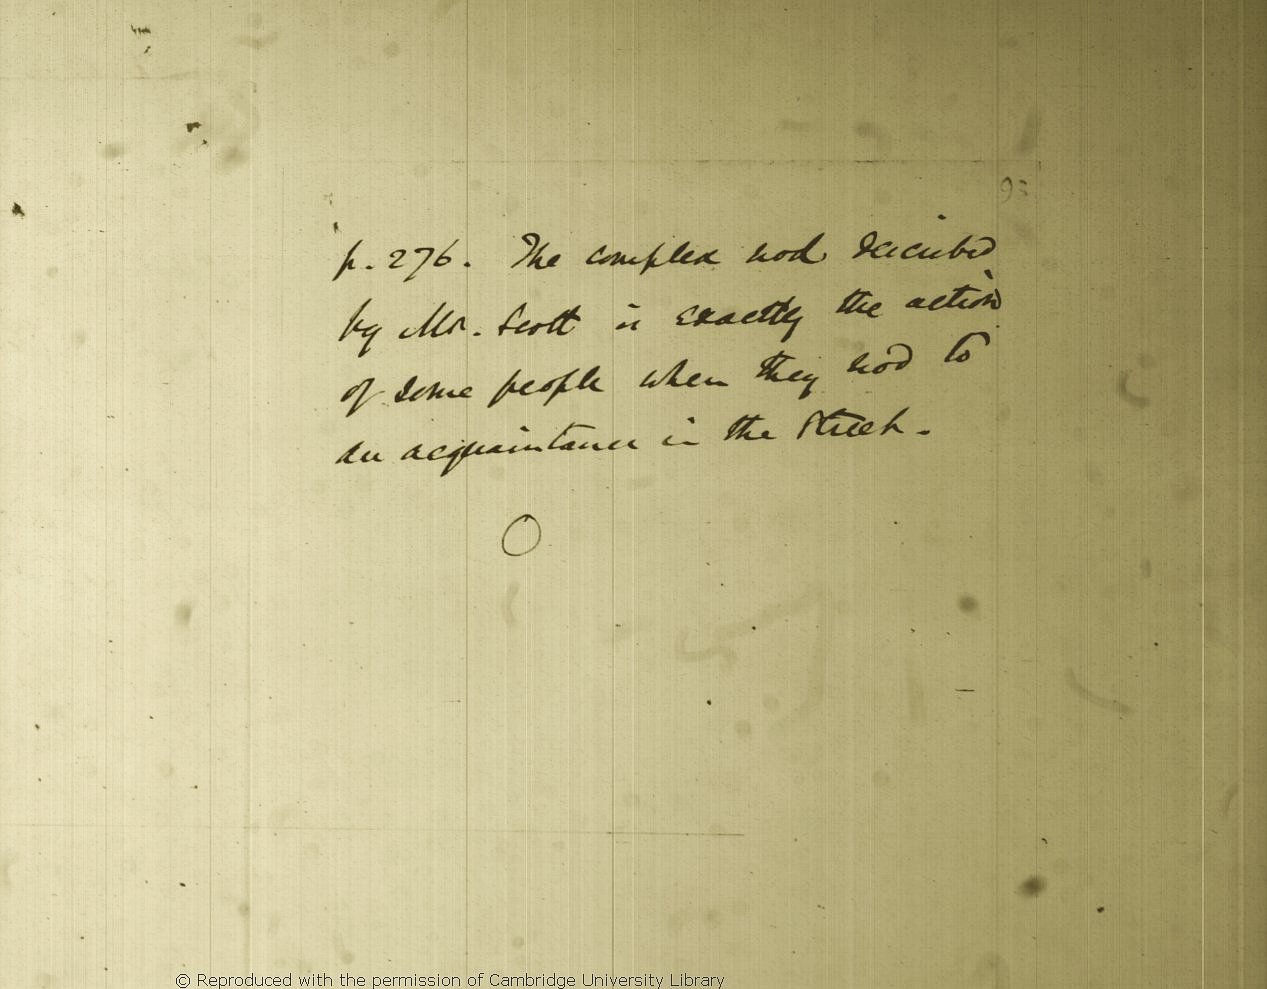 95
p. 276. The complex nod described
by Mr. Scott is exactly the action
of some people when they nod to
an acquaintance in the street.
© Reproduced with the permission of Cambridge University Library